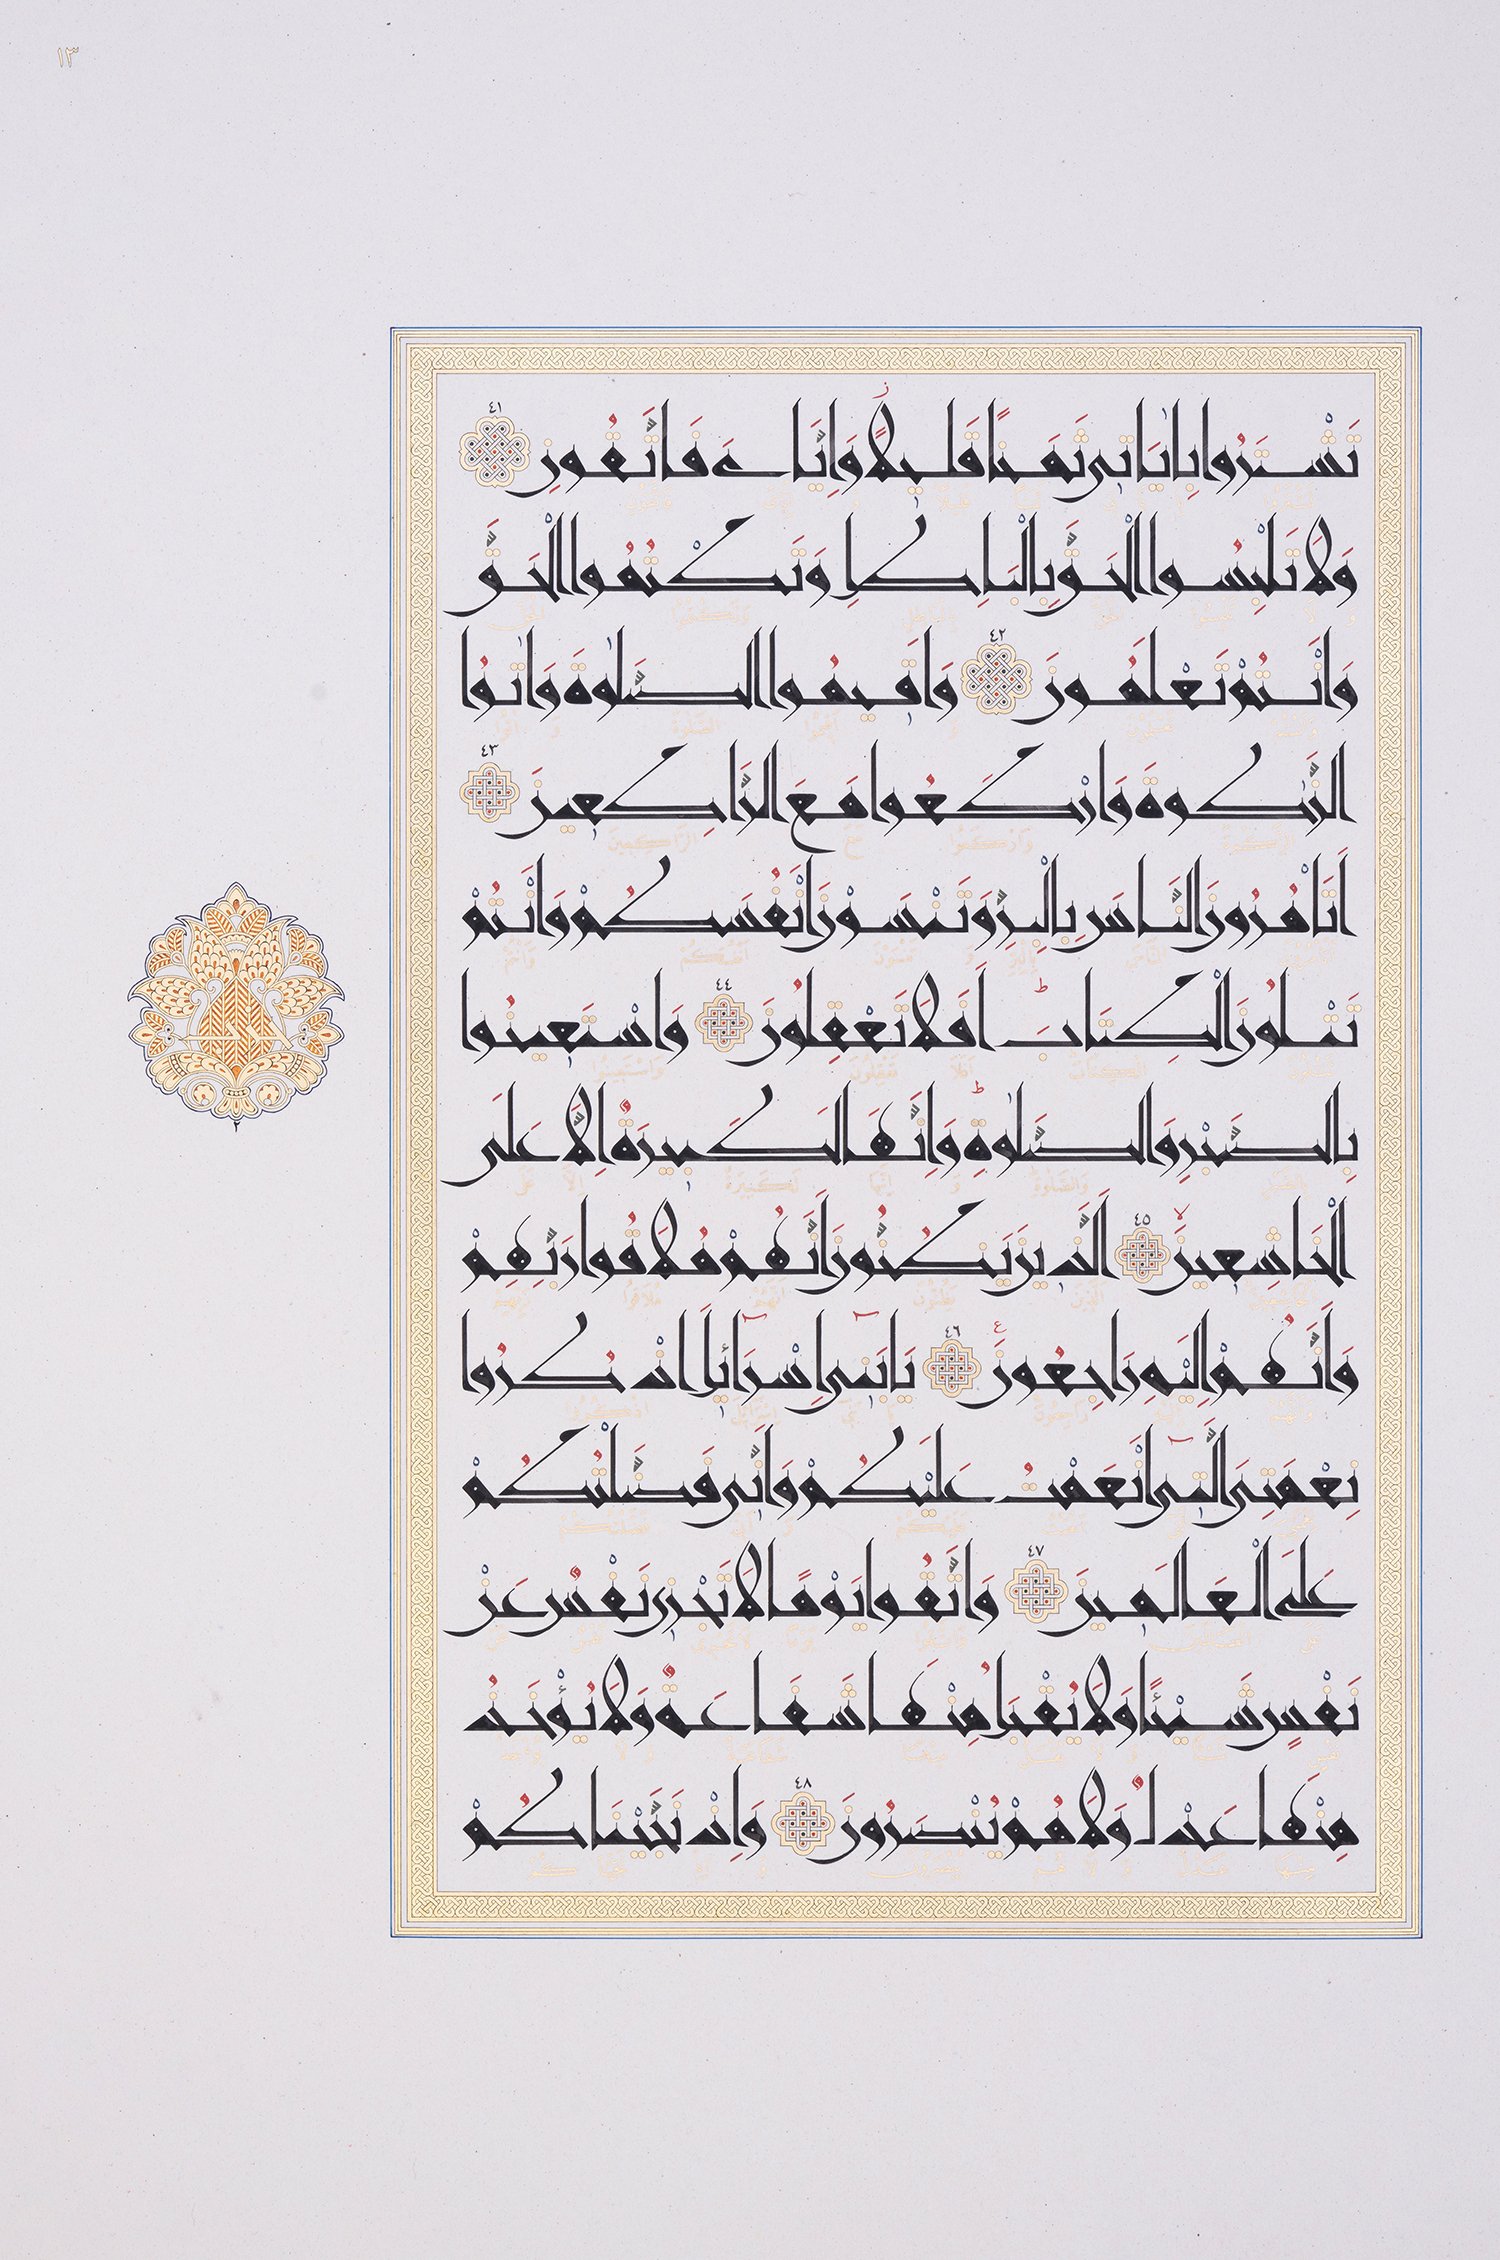 ١٣
تَشْتَرُوا بِاٰيَاتٖي ثَمَنًا قَلٖيلًاۘ وَاِيَّايَ فَاتَّقُونِ ٤١
وَلَا تَلْبِسُوا الْحَقَّ بِالْبَاطِلِ وَتَكْتُمُوا الْحَقَّ
وَاَنْتُمْ تَعْلَمُونَ ٤٢ وَاَقٖيمُوا الصَّلٰوةَ وَاٰتُوا
الزَّكٰوةَ وَارْكَعُوا مَعَ الرَّاكِعٖينَ ٤٣
اَتَاْمُرُونَ النَّاسَ بِالْبِرِّ وَتَنْسَوْنَ اَنْفُسَكُمْ وَاَنْتُمْ
تَتْلُونَ الْكِتَابَ ط اَفَلَا تَعْقِلُونَ ٤٤ وَاسْتَعٖينُوا
بِالصَّبْرِ وَالصَّلٰوةِ ط وَاِنَّهَا لَكَبٖيرَةٌ اِلَّا عَلَى
الْخَاشِعٖينَ لا ٤٥ اَلَّذٖينَ يَظُنُّونَ اَنَّهُمْ مُلَاقُوا رَبِّهِمْ
وَاَنَّهُمْ اِلَيْهِ رَاجِعُونَ ع ٤٦ يَا بَنٖٓي اِسْرَٓائٖلَ اذْكُرُوا
نِعْمَتِيَ الَّتٖٓي اَنْعَمْتُ عَلَيْكُمْ وَاَنّٖي فَضَّلْتُكُمْ
عَلَى الْعَالَمٖينَ ٤٧ وَاتَّقُوا يَوْمًا لَا تَجْزٖي نَفْسٌ عَنْ
نَفْسٍ شَيْئًا وَلَا يُقْبَلُ مِنْهَا شَفَاعَةٌ وَلَا يُؤْخَذُ
مِنْهَا عَدْلٌ وَلَا هُمْ يُنْصَرُونَ ٤٨ وَاِذْ نَجَّيْنَاكُمْ
٢